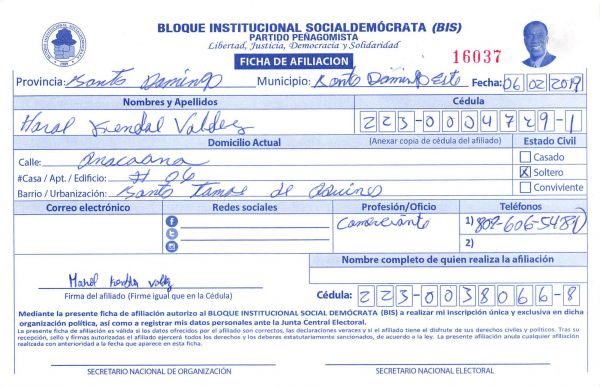 BLOQUE INSTITUCIONAL SOCIALDEMÓCRATA (BIS)
PARTIDO PEÑAGOMISTA
Libertad, Justicia, Democracia y Solidaridad
FICHA DE AFILIACION
16037
Provincia: Santo Domingo Municipio: Santo Domingo Este Fecha: 06 02 2019
Nombres y Apellidos Cédula
Kendal Valdez 223-0004729-1
Domicilio Actual (Anexar copia de cédula del afiliado) Estado Civil
Calle: Anacaona
Casado
#Casa / Apt. / Edificio: # 06
X Soltero
Barrio / Urbanización: Santo Tomas de Aquino
Conviviente
Correo electrónico Redes sociales Profesión/Oficio Teléfonos
Comerciante 1)
2)
Nombre completo de quien realiza la afiliación
Firma del afiliado (Firme igual que en la Cédula)
Cédula: 223-0038066-8
Mediante la presente ficha de afiliación autorizo al BLOQUE INSTITUCIONAL SOCIAL DEMÓCRATA (BIS) a realizar mi inscripción única y exclusiva en dicha
organización política, así como a registrar mis datos personales ante la Junta Central Electoral.
La presente ficha de afiliación es válida si los datos ofrecidos por el afiliado son correctos, las declaraciones veraces y si el afiliado tiene el disfrute de sus derechos civiles y políticos. Tras su
recepción, sello y firmas autorizadas el afiliado ejercerá todos los derechos y los deberes estatutariamente sancionados, de acuerdo a la ley. La presente afiliación anula cualquier afiliación
realizada con anterioridad a la fecha que aparece en esta ficha.
SECRETARIO NACIONAL DE ORGANIZACIÓN SECRETARIO NACIONAL ELECTORAL